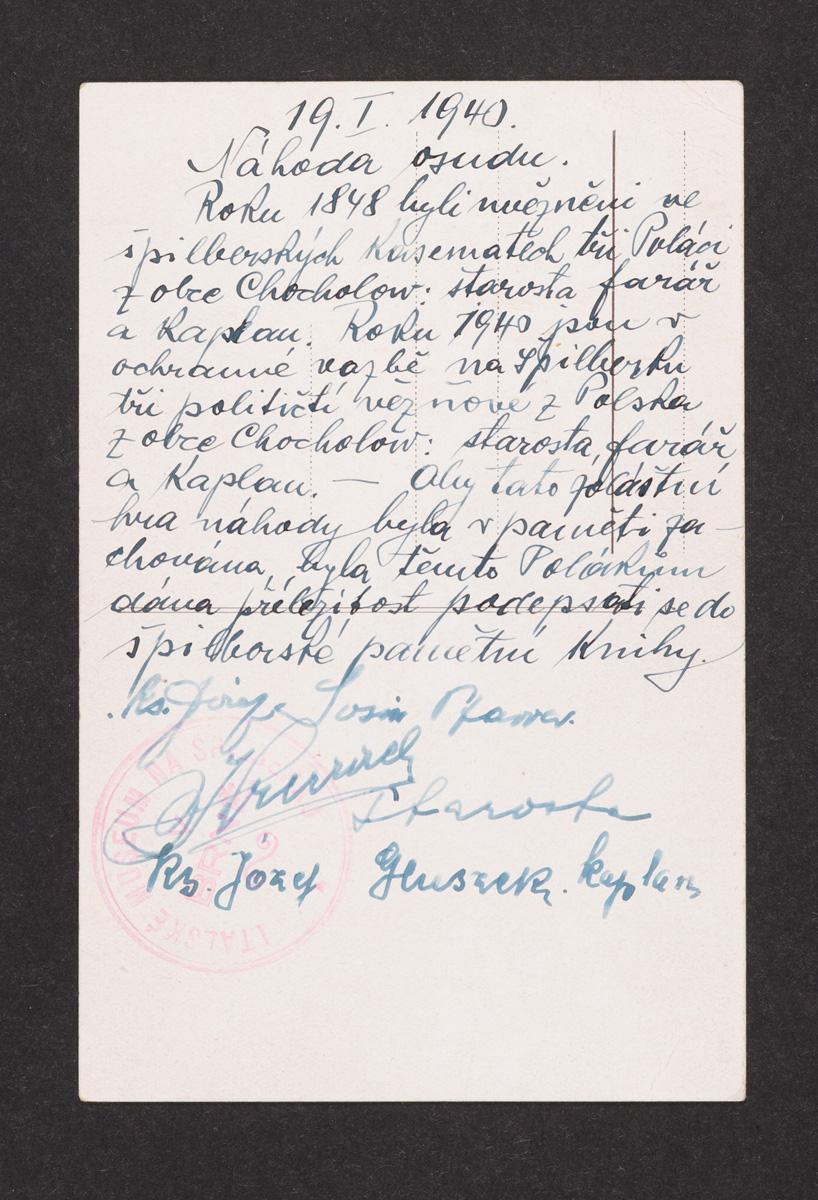 19. I. 1940.
Náhoda osudu.
Roku 1848 byli uvězněni ve
špilberských Kasematech tři Poláci
z obce Chocholow: starosta farář
a Kaplan. Roku 1940 jsou v
ochranné vazbě na Špilberku
tři političtí vězňové z Polska
z obce Chocholow: starosta, farář
a Kaplan. — Aby tato zvláštní
hra náhody byla v paměti za-
chována, byla těmto Polákům
dána příležitost podepsati se do
špilberské pamětní Knihy.
Ks.
starosta
Ks. Józef kaplan
ITALSKÉ MUSEUM NA